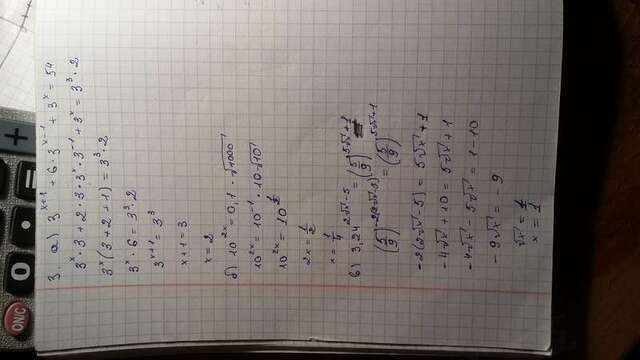 3. а) 3^{x+1} + 6·3^{x-1} + 3^x = 54
3^x·3 + 2·3·3^x·3^{-1} + 3^x = 3^3·2
3^x(3+2+1) = 3^3·2
3^x·6 = 3^3·2
3^{x+1} = 3^3
x+1 = 3
x = 2
б) 10^{2x} = 0,1·√1000
10^{2x} = 10^{-1}·10·√10
10^{2x} = 10^{1/2}
2x = 1/2
x = 1/4
в) 3,24^{2√x-5} = (5/9)^{5√x+1}
(5/9)^{-2(2√x-5)} = (5/9)^{5√x+1}
-2(2√x-5) = 5√x+1
-4√x+10 = 5√x+1
-4√x-5√x = 1-10
-9√x = 9
√x = 1
ON/C
+